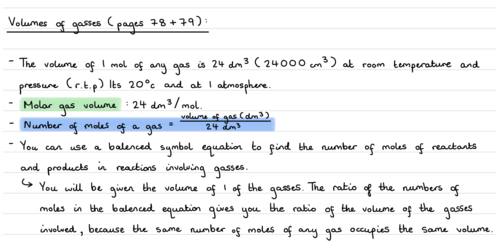 Volumes of gasses (pages 78 + 79):
- The volume of 1 mol of any gas is 24 dm³ (24000 cm³) at room temperature and
pressure (r.t.p) Its 20°c and at 1 atmosphere.
- Molar gas volume : 24 dm³/mol.
- Number of moles of a gas = volume of gas (dm³) / 24 dm³
- You can use a balenced symbol equation to find the number of moles of reactants
and products in reactions involving gasses.
↳ You will be given the volume of 1 of the gasses. The ratio of the numbers of
moles in the balenced equation gives you the ratio of the volume of the gasses
involved, because the same number of moles of any gas occupies the same volume.